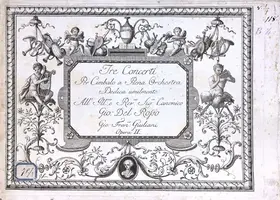 Tre Concerti
Per Cembalo a Piena Orchestra
Dedica umilmente
All' Ill.mo e Rev. Sig. Canonico
Gio: Del Rosso
Gio: Fran. Giuliani
Opera II.